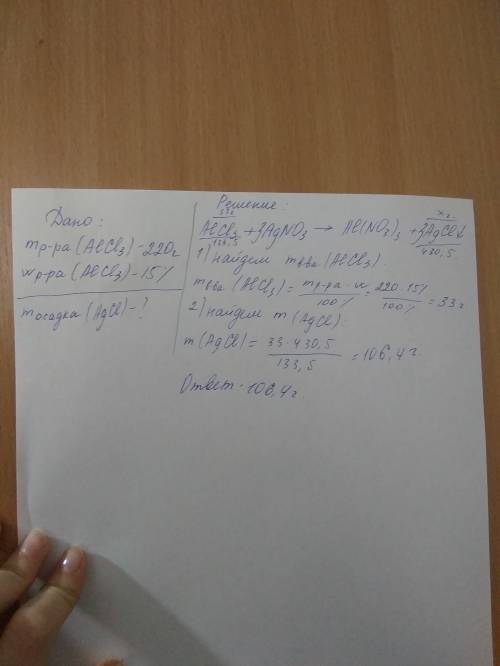 Дано:
mр-ра (AlCl3) - 220г
wр-ра (AlCl3) - 15%
mосадка (AgCl) - ?
Решение:
33г xг
AlCl3 + 3AgNO3 → Al(NO3)3 + 3AgCl↓
133,5 430,5
1) найдем mв-ва (AlCl3).
mв-ва (AlCl3) = mр-ра · w / 100% = 220 · 15% / 100% = 33г
2) найдем m (AgCl):
m (AgCl) = 33 · 430,5 / 133,5 = 106,4г.
Ответ - 106,4г.